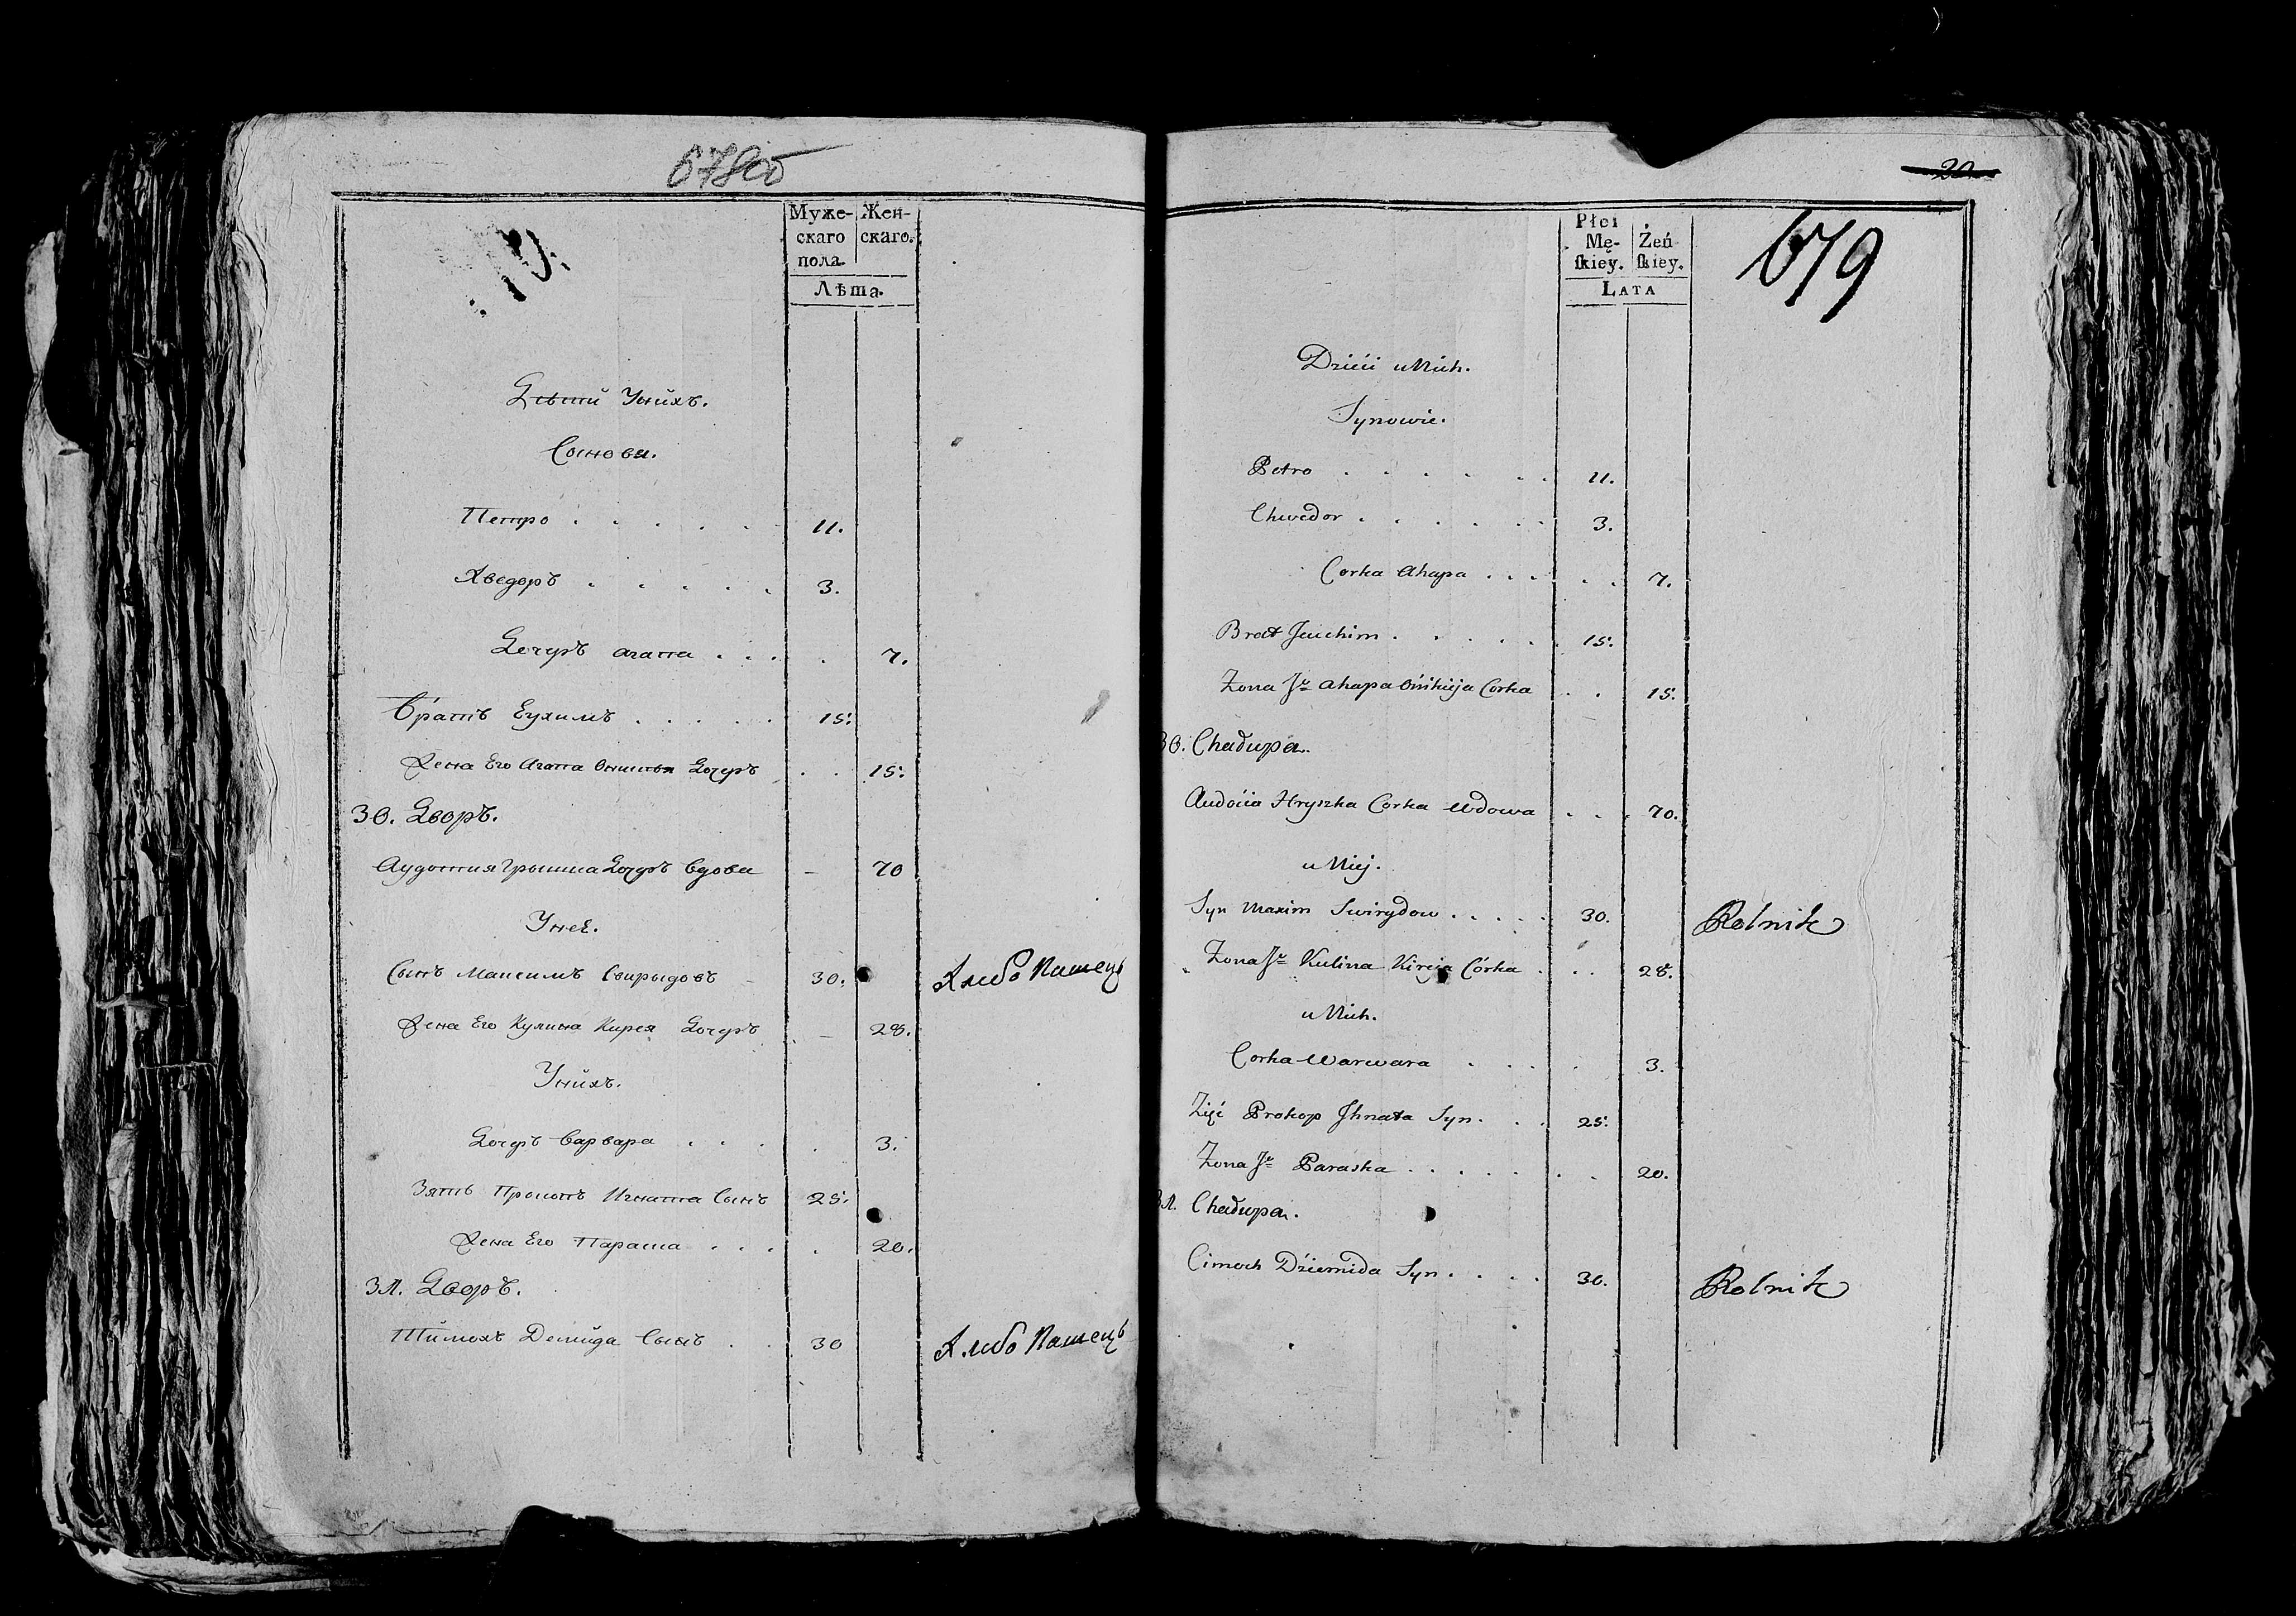 678об
Муже- Жен-
скаго скаго.
пола.
Лѣта.
Дѣтй Унйхъ.
Сынове.
Петро . . . . . . 11.
Хведоръ . . . . . 3.
Дочеръ Агапа . . . . 7.
Братъ Еухимъ . . . . . 15.
Жена Его Агапа Дочеръ . . 15.
30. Дворъ.
Аудотия Грышка Дочеръ Вдова – 70
Унеё.
Сынъ Максимъ Свирыдовъ – 30. Хлѣбо Пашецъ
Жена Его Кулина Кирея Дочеръ – 28.
Унйхъ.
Дочеръ Варвара . . . . 3.
Зять Прокопъ Игната Сынъ 25.
Жена Его Параска . . . . 20.
31. Дворъ.
Тймохъ Демйда Сынъ . . 30 Хлѣбо Пашецъ
20
679
Płci
Mę- Żeń
ſkiey. ſkiey.
LATA
Dzieci u Nich.
Synowie.
Petro . . . . . . 11.
Chwedor . . . . . . 3.
Corka Ahapa . . . . . 7.
Brat Jeuchim . . . . . 15.
Żona Je Ahapa Corka . . 15.
30. Chałupa.
Audocia Hryszka Corka Wdowa . . . 70.
u Niej.
Syn Maxim Swirydow . . . . . 30. Rolnik
Żona Je Kulina Kireja Córka . . . 28.
u Nich.
Corka Warwara . . . . 3.
Zięć Prokop Jhnata Syn . . . 25.
Żona Je Paraska . . . . . . . 20.
31. Chałupa.
Cimoch Dziemida Syn . . . . 30. Rolnik